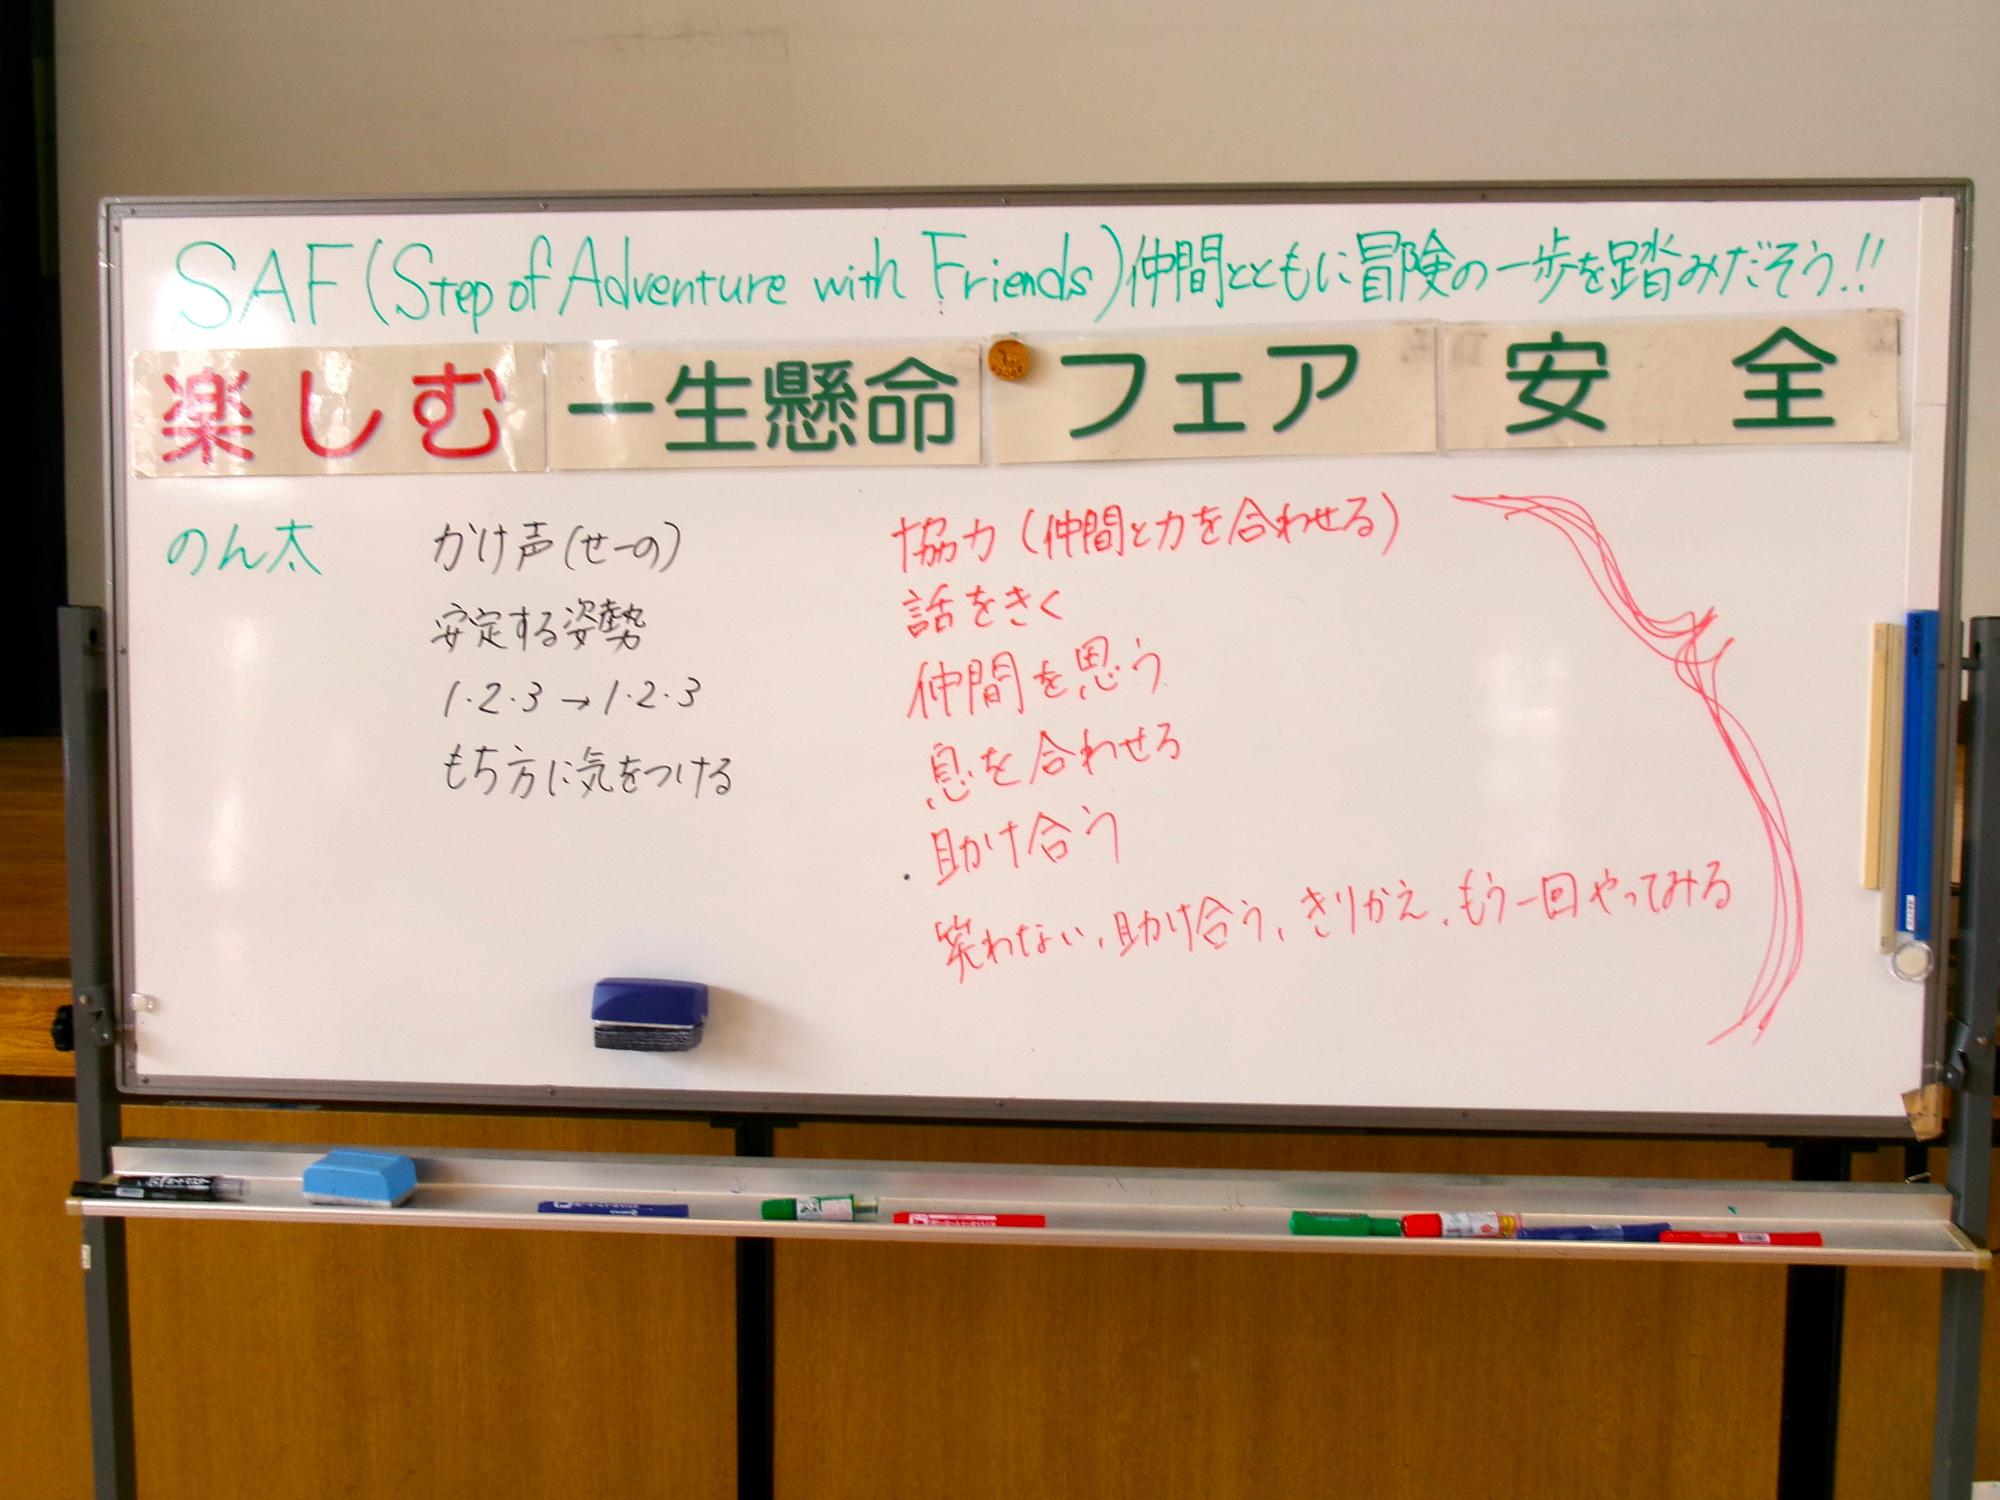 SAF(Step of Adventure with Friends)仲間とともに冒険の一歩を踏みだそう!!
楽しむ 一生懸命 フェア 安全
のん太
かけ声(せーの)
安定する姿勢
1・2・3→1・2・3
もち方に気をつける
協力(仲間と力を合わせる)
話をきく
仲間を思う
息を合わせる
助け合う
笑わない、助け合う、きりかえ、もう一回やってみる